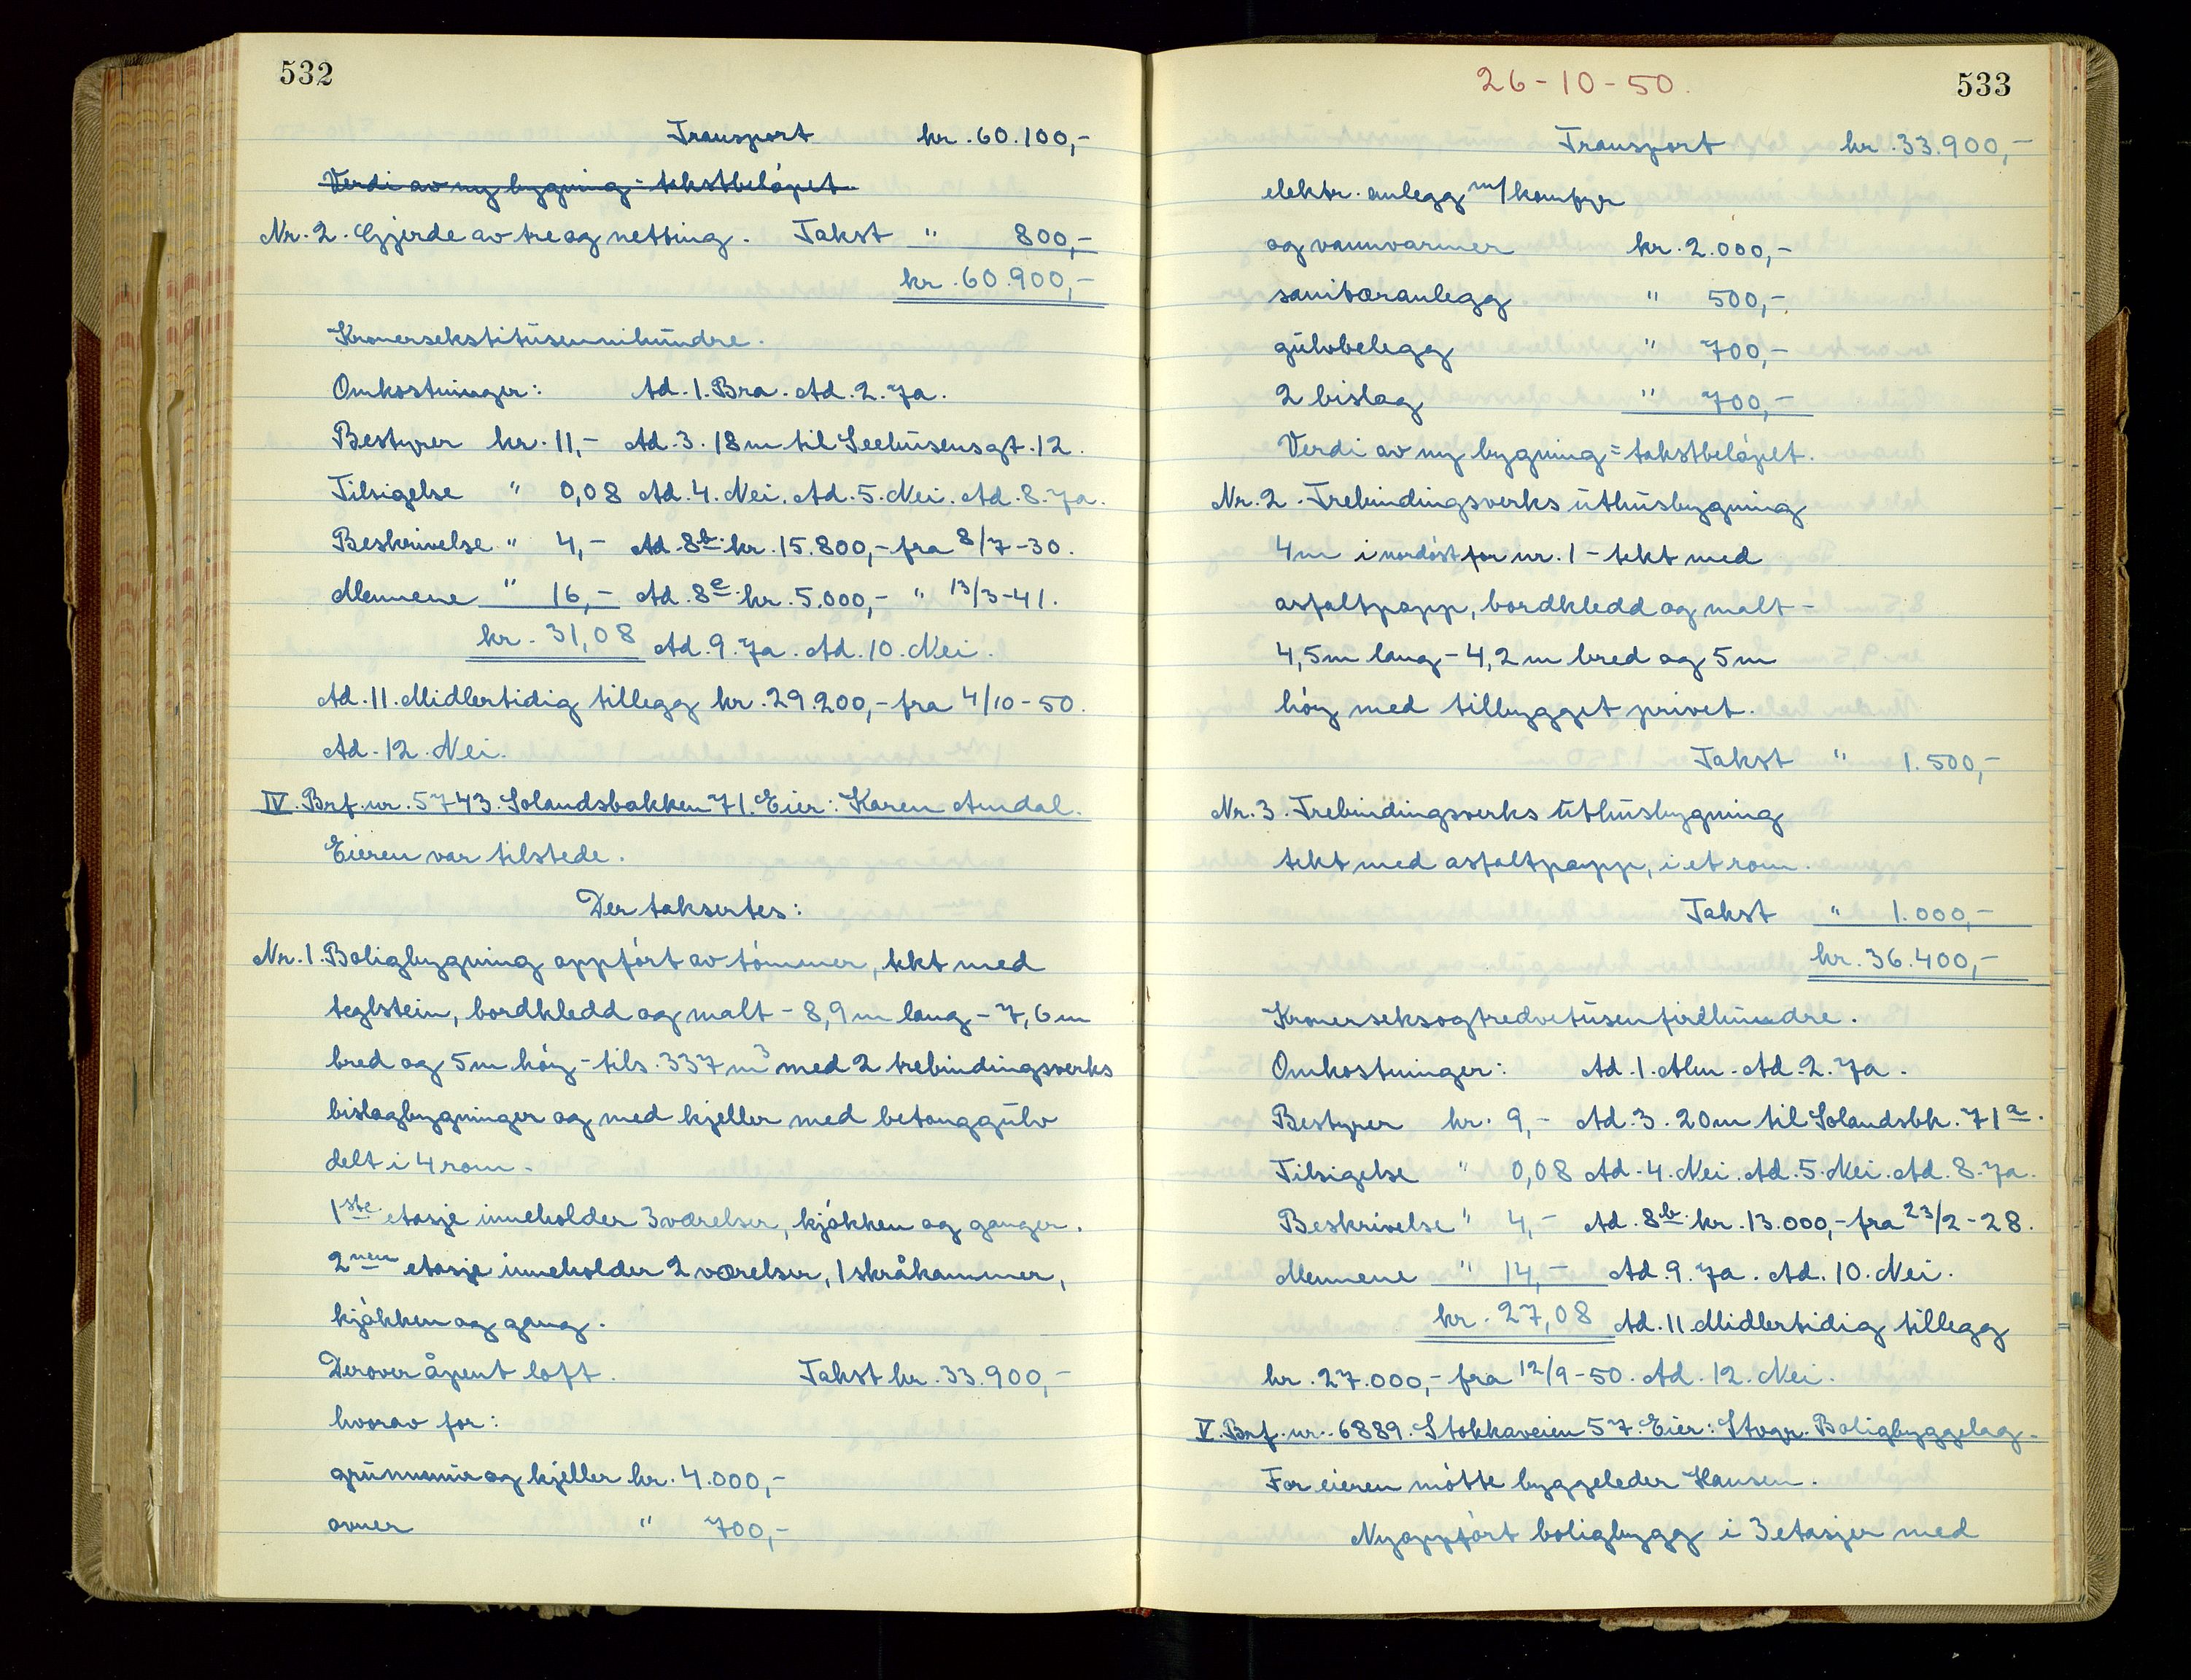 532
Transport kr. 60.100,-
Verdi av ny bygning = takstbeløpet.
Nr. 2. Gjerde av tre og netting. Takst " 800,-
kr. 60.900,-
Kronersekstitusennihundre.
Omkostninger: Ad. 1. Bra. Ad. 2. Ja.
Bestyrer kr. 11,- Ad. 3. 18m til Seehusensgt. 12.
Tilsigelse " 0,08 Ad. 4. Nei. Ad. 5. Nei. Ad. 8. Ja.
Beskrivelse " 4,- Ad. 8b. kr. 15.800,- fra 8/7-30.
Mennene " 16,- Ad. 8e. kr. 5.000,- " 13/3-41.
kr. 31,08 Ad. 9. Ja. Ad. 10. Nei.
Ad. 11. Midlertidig tillegg kr. 29.200,- fra 4/10-50.
Ad. 12. Nei.
IV. Brf. nr. 5743. Solandsbakken 71. Eier: Karen Amdal.
Eieren var tilstede.
Der taksertes:
Nr. 1. Boligbygning oppført av tømmer, tekt med
teglstein, bordkledd og malt - 8,9m lang - 7,6m
bred og 5m høy - tils. 337 m3 med 2 trebindingsverks
bislagbygninger og med kjeller med betonggulv
delt i 4 rom.
1ste etasje inneholder 3 værelser, kjøkken og ganger.
2nen etasje inneholder 2 værelser, 1 skråkammer,
kjøkken og gang.
Derover åpent loft. Takst kr. 33.900,-
hvorav for:
grunnmur og kjeller kr. 4.000,-
ovner " 700,-
26-10-50.
533
Transport kr. 33.900,-
elektr. anlegg m/komfyr
og vannvarmer kr. 2.000,-
sanitæranlegg " 500,-
gulvbelegg " 700,-
2 bislag " 700,-
Verdi av ny bygning = takstbeløpet.
Nr. 2. Trebindingsverks uthusbygning
4m i nordøst for nr. 1 - tekt med
asfaltpapp, bordkledd og malt -
4,5m lang - 4,2m bred og 5m
høy med tilbygget privet.
Takst " 1.500,-
Nr. 3. Trebindingsverks uthusbygning
tekt med asfaltpapp, i et rom.
Takst " 1.000,-
kr. 36.400,-
Kronerseksogtredvetusenfirehundre.
Omkostninger: Ad. 1. Alm. Ad. 2. Ja.
Bestyrer kr. 9,- Ad. 3. 20m til Solandsbk. 71a.
Tilsigelse " 0,08 Ad. 4. Nei. Ad. 5. Nei. Ad. 8. Ja.
Beskrivelse " 4,- Ad. 8b. kr. 13.000,- fra 23/2-28.
Mennene " 14,- Ad. 9. Ja. Ad. 10. Nei.
kr. 27,08 Ad. 11 Midlertidig tillegg
kr. 27.000,- fra 12/9-50. Ad. 12. Nei.
V. Brf. nr. 6889. Stokkaveien 57. Eier: Stvgr. Boligbyggelag.
For eieren møtte byggeleder Hansen.
Nyoppført boligbygg i 3 etasjer med